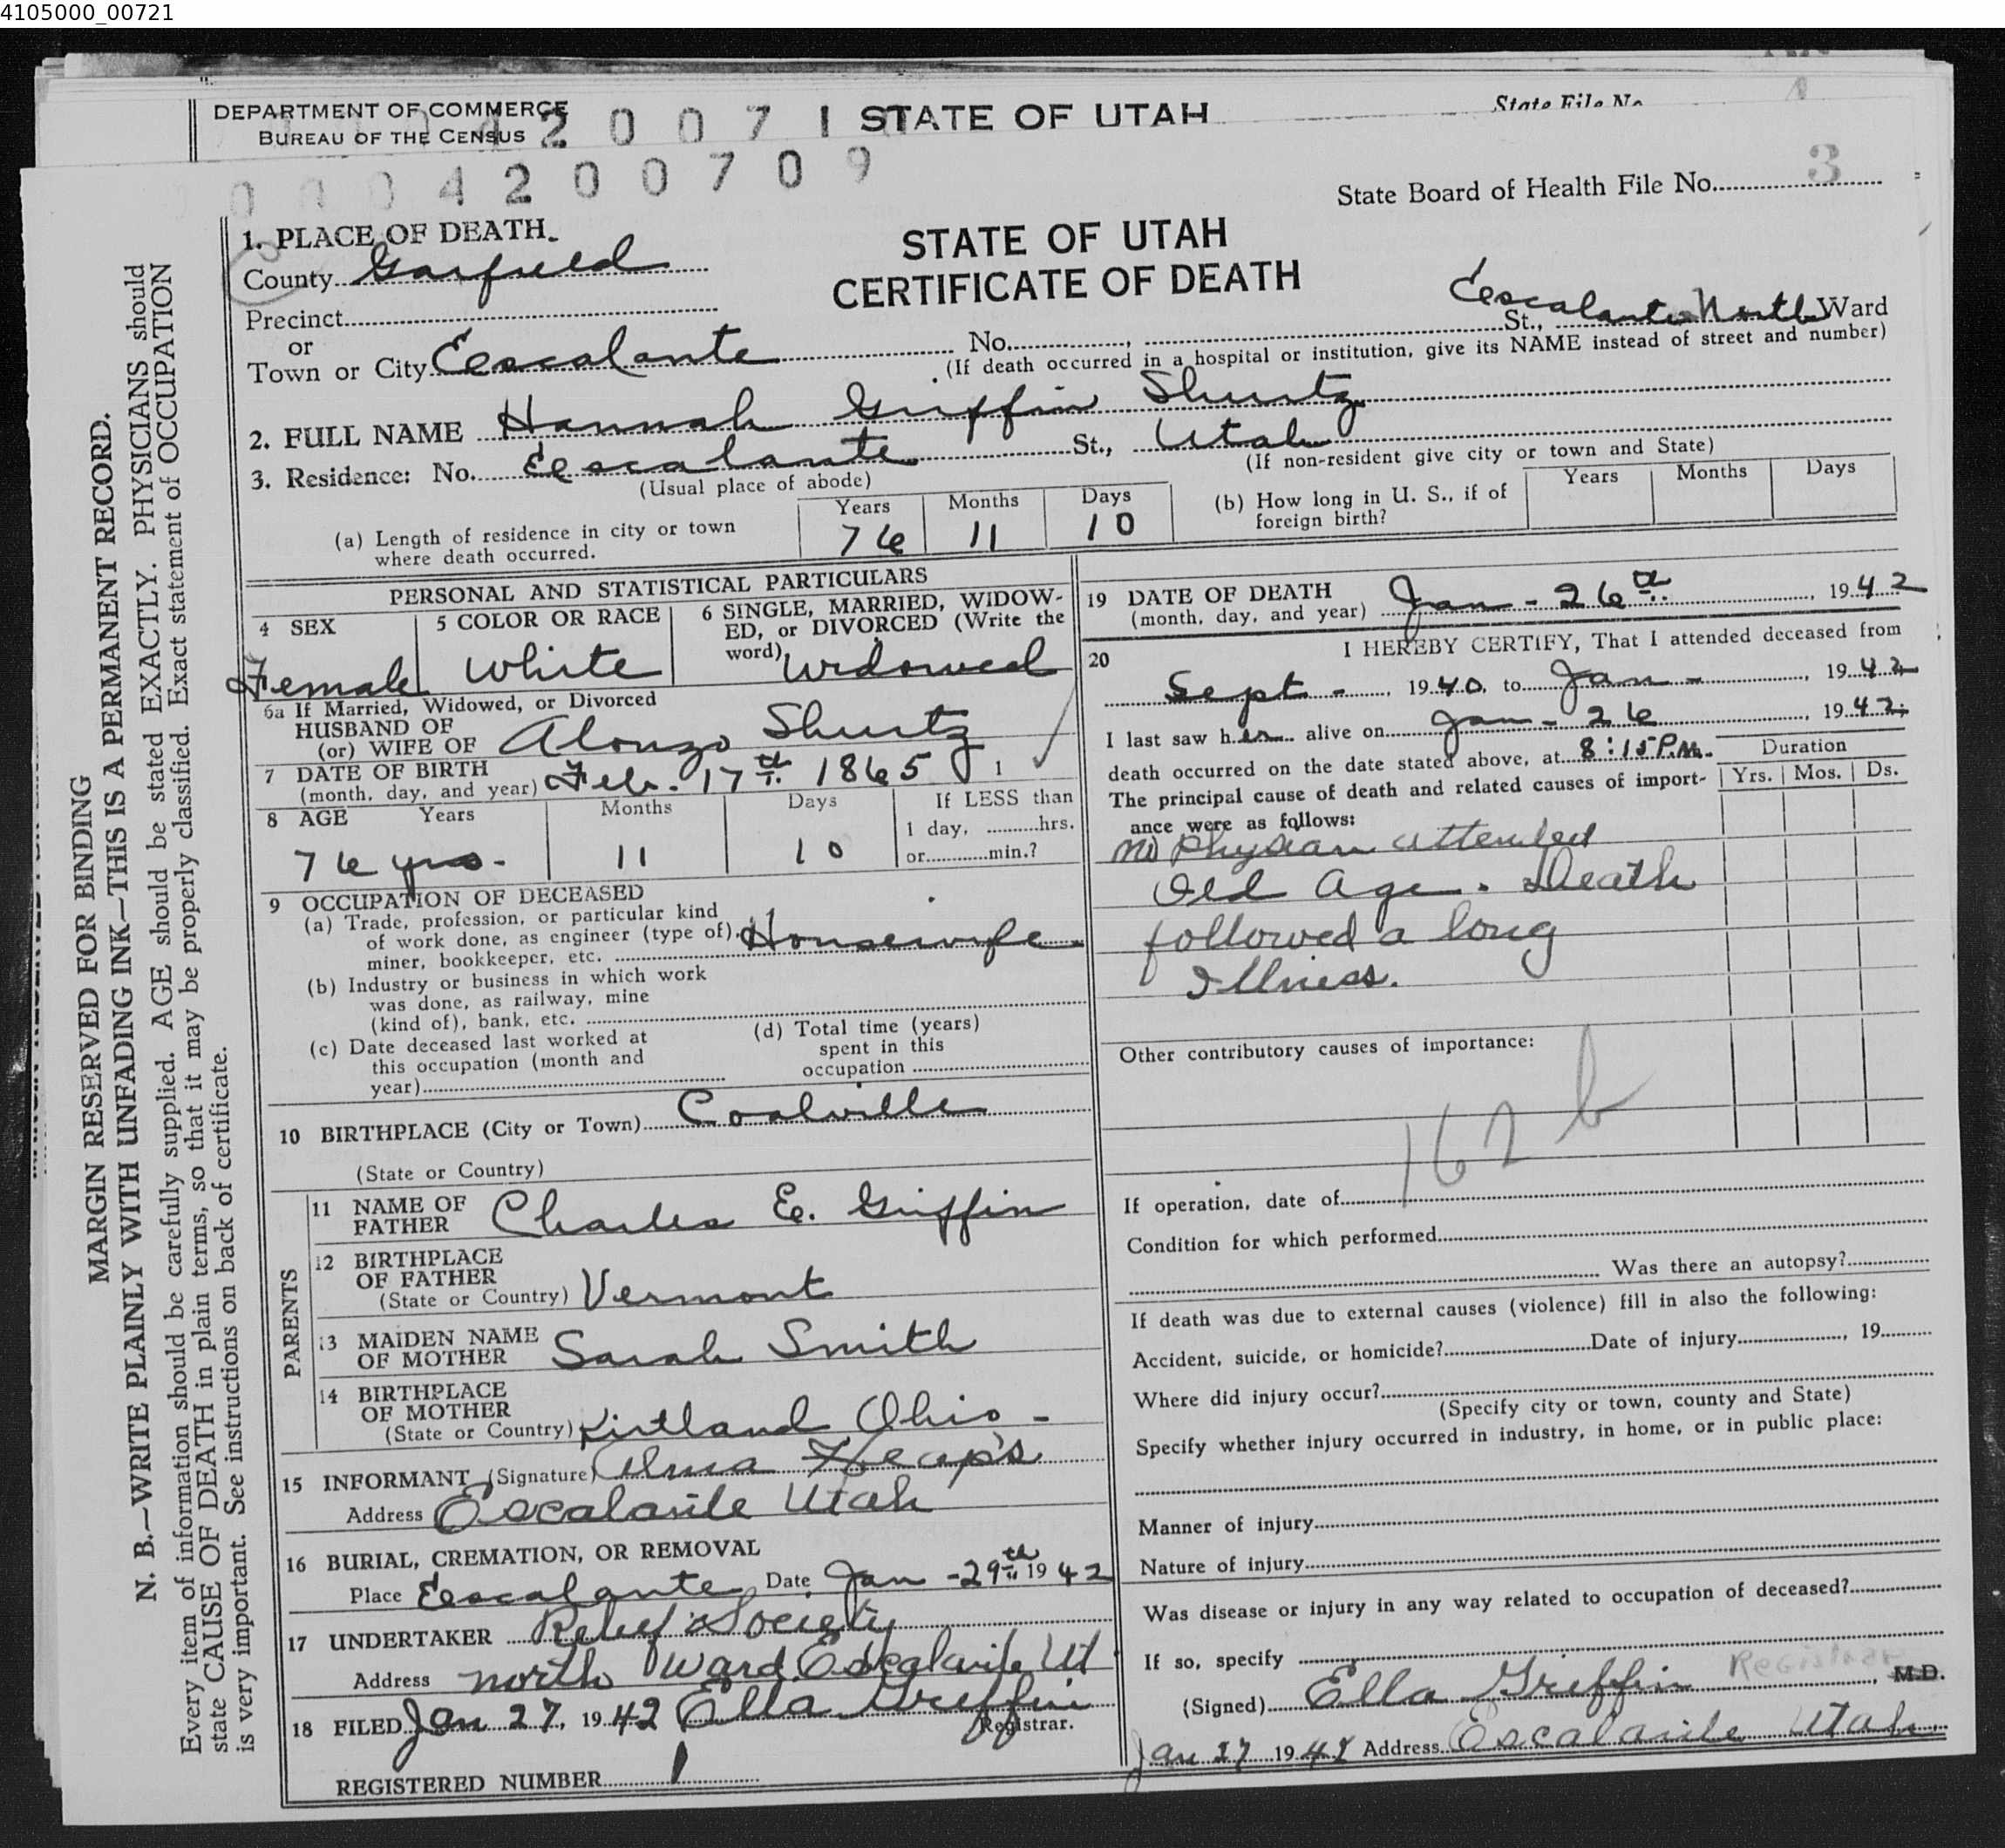 4105000_00721
DEPARTMENT OF COMMERCE
BUREAU OF THE CENSUS
2 0 0 7 1
STATE OF UTAH
State File No.
0 0 0 4 2 0 0 7 0 9
State Board of Health File No. 3
STATE OF UTAH
CERTIFICATE OF DEATH
1. PLACE OF DEATH.
County Garfield
Precinct
or
Town or City Escalante No. St., Escalante North Ward
(If death occurred in a hospital or institution, give its NAME instead of street and number)
2. FULL NAME Hannah Griffin Shurtz
3. Residence: No. Escalante St., Utah
(Usual place of abode)
(If non-resident give city or town and State)
(a) Length of residence in city or town where death occurred. Years 76 Months 11 Days 10
(b) How long in U. S., if of foreign birth? Years Months Days
PERSONAL AND STATISTICAL PARTICULARS
4 SEX Female
5 COLOR OR RACE White
6 SINGLE, MARRIED, WIDOW-
ED, or DIVORCED (Write the
word) Widowed
6a If Married, Widowed, or Divorced
HUSBAND OF
(or) WIFE OF Alonzo Shurtz
7 DATE OF BIRTH
(month, day, and year) Feb. 17th 1865 1
8 AGE Years Months Days If LESS than
1 day, hrs.
76 yrs. 11 10 or min.?
9 OCCUPATION OF DECEASED
(a) Trade, profession, or particular kind
of work done, as engineer (type of), Housewife
miner, bookkeeper, etc.
(b) Industry or business in which work
was done, as railway, mine
(kind of), bank, etc.
(c) Date deceased last worked at
this occupation (month and
year)
(d) Total time (years)
spent in this
occupation
10 BIRTHPLACE (City or Town) Coalville
(State or Country)
PARENTS
11 NAME OF
FATHER Charles E. Griffin
12 BIRTHPLACE
OF FATHER
(State or Country) Vermont
13 MAIDEN NAME
OF MOTHER Sarah Smith
14 BIRTHPLACE
OF MOTHER
(State or Country) Kirtland Ohio -
15 INFORMANT (Signature) Alma Heaps
Address Escalante Utah
16 BURIAL, CREMATION, OR REMOVAL
Place Escalante Date Jan - 29th 1942
17 UNDERTAKER Relief Society
Address North Ward Escalante Ut
18 FILED Jan 27, 1942 Ella Griffin
Registrar.
REGISTERED NUMBER 1
19 DATE OF DEATH
(month, day, and year) Jan - 26th, 1942
20 I HEREBY CERTIFY, That I attended deceased from
Sept -, 1940, to Jan -, 1942
I last saw her alive on Jan - 26, 1942;
death occurred on the date stated above, at 8:15 P.M.
Duration
Yrs. Mos. Ds.
The principal cause of death and related causes of import-
ance were as follows:
no Physian attended
Old Age. Death
followed a long
Illness.
Other contributory causes of importance:
162 b
If operation, date of
Condition for which performed
Was there an autopsy?
If death was due to external causes (violence) fill in also the following:
Accident, suicide, or homicide? Date of injury, 19
Where did injury occur?
(Specify city or town, county and State)
Specify whether injury occurred in industry, in home, or in public place:
Manner of injury
Nature of injury
Was disease or injury in any way related to occupation of deceased?
If so, specify
(Signed) Ella Griffin Registrar, M.D.
Jan 27 1942 Address Escalante Utah
MARGIN RESERVED FOR BINDING
N. B.—WRITE PLAINLY WITH UNFADING INK—THIS IS A PERMANENT RECORD.
Every item of information should be carefully supplied. AGE should be stated EXACTLY. PHYSICIANS should
state CAUSE OF DEATH in plain terms, so that it may be properly classified. Exact statement of OCCUPATION
is very important. See instructions on back of certificate.